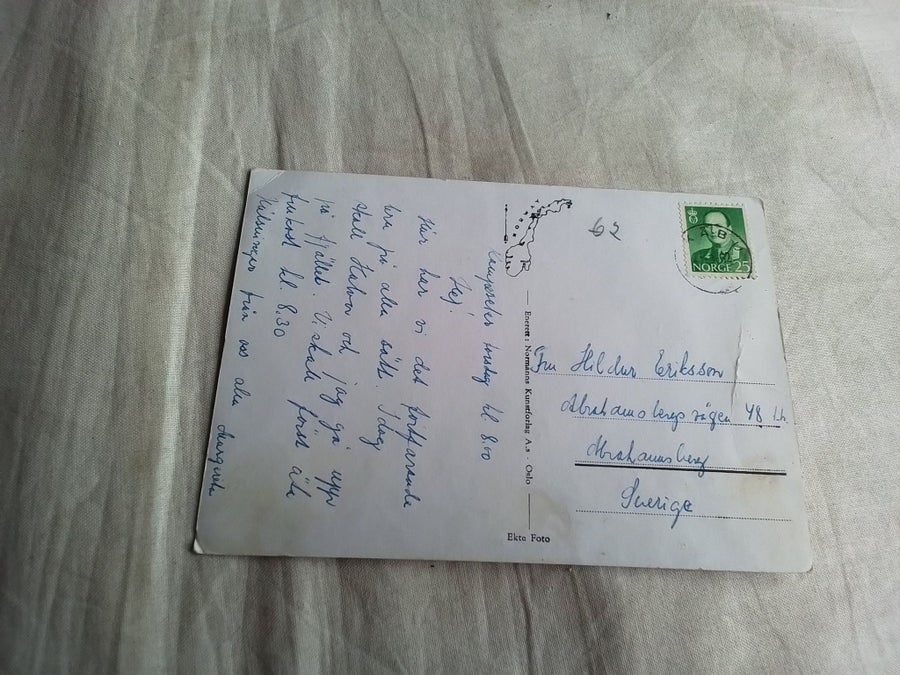 Kampeseter tisdag kl. 8.00
Hej!
Här har vi det fortfarande
bra på alla sätt. Idag
skall Hakon och jag gå upp
på fjället. Vi skall först äta
frukost kl 8.30
Hälsningar från oss alla Margareta
NORGE
Enerett: Normanns Kunstforlag A.s - Oslo
Ekte Foto
62
ÅLB
NORGE 25
Fru Hildur Eriksson
Abrahamsbergsvägen 48
Abrahamsberg
Sverige